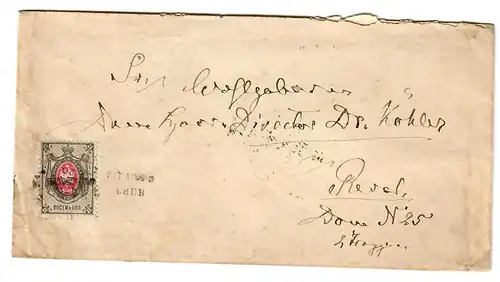 Sr. Wohlgeboren
Herrn Director Dr. Köhler
in
Reval,
Dom N 25
2 Treppen
ВОСЕМЬ КОП.